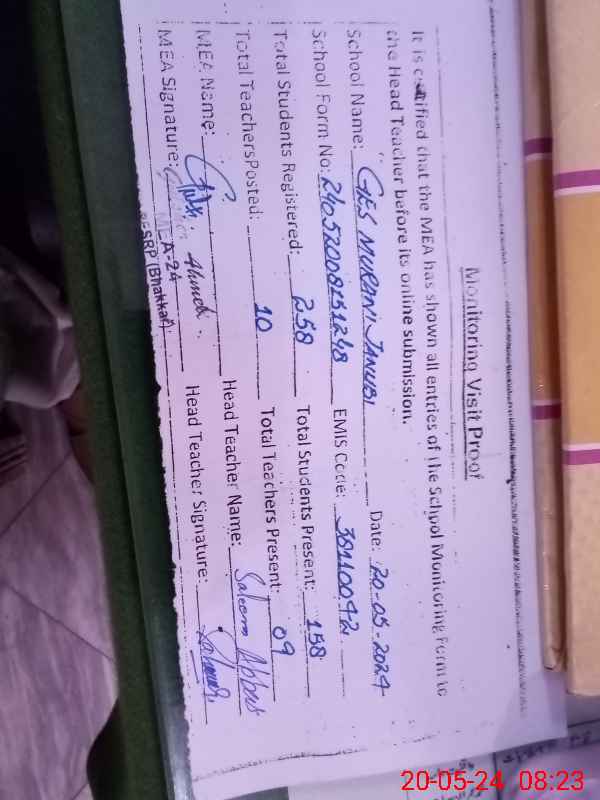 Monitoring Visit Proof
It is certified that the MEA has shown all entries of the School Monitoring Form to
the Head Teacher before its online submission.
School Name: GES MURANI JANUBI Date: 20-05-2024
School Form No: 24052008151248 EMIS Code: 38110092
Total Students Registered: 258 Total Students Present: 158
Total Teachers Posted: 10 Total Teachers Present: 09
MEA Name: Head Teacher Name: Saleem Abbas
MEA Signature: Ahmed Head Teacher Signature:
MEA-24
PESRP (Bhakkar)
20-05-24 08:23